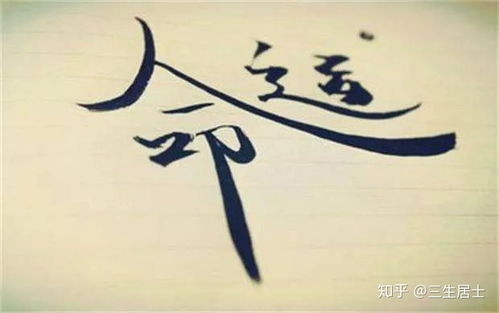 命运
知乎 @三生居士